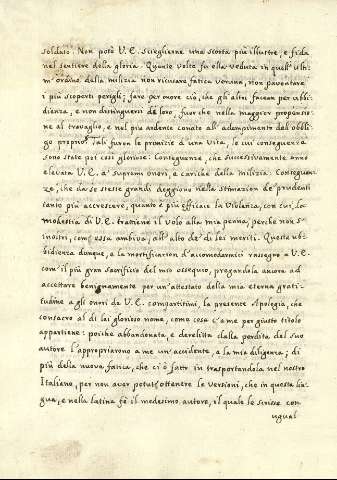 soldato. Non potè V.E. sceglierne una scorta più illustre, e fida
nel sentiere della gloria. Quante volte fu ella veduta in quell'ulti-
m'ordine della milizia non ricusare fatica veruna, non paventare
i più scoperti perigli; fare per onore ciò, che gli altri facean per ubbi-
dienza, e non distinguersi da loro, fuor che nella maggior propensio-
ne al travaglio, e nel più ardente conato all'adempimento dell'obbli-
go proprio? Tali furon le primizie d'una Vita, le cui conseguenze
sono state poi così gloriose: Conseguenze, che successivamente anno
elevata V.E. a' supremi onori, e cariche della milizia: Conseguen-
ze, che da se stesse grandi deggiono nella stimazion de' prudenti
tanto più accrescere, quanto è più efficace la Violenza, con cui la
modestia di V.E. trattiene il Volo alla mia penna, perche non s'
inoltri, com'essa ambiva, all'alto de' di lei meriti. Questa ub-
bidienza dunque, a la mortification d'accomodarmici rassegno a V.E.
com'il più gran sacrificio del mio ossequio, pregandola ancora ad
accettare benignamente per un'attestato della mia eterna grati-
tudine a gli onori da V.E. compartitimi la presente Apologia, che
consacro al di lei glorioso nome, come cosa ch'a me per giusto titolo
appartiene: poiche abbandonata, e derelitta dalla perdita del suo
autore l'appropriarono a me un'accidente, e la mia diligenza; di
più della nuova fatica, che ci ò fatto in trasportandola nel nostro
Italiano, per non aver potuto ottenere le versioni, che in questa lin-
gua, e nella latina fè il medesimo autore, il quale le scrisse con
ugual